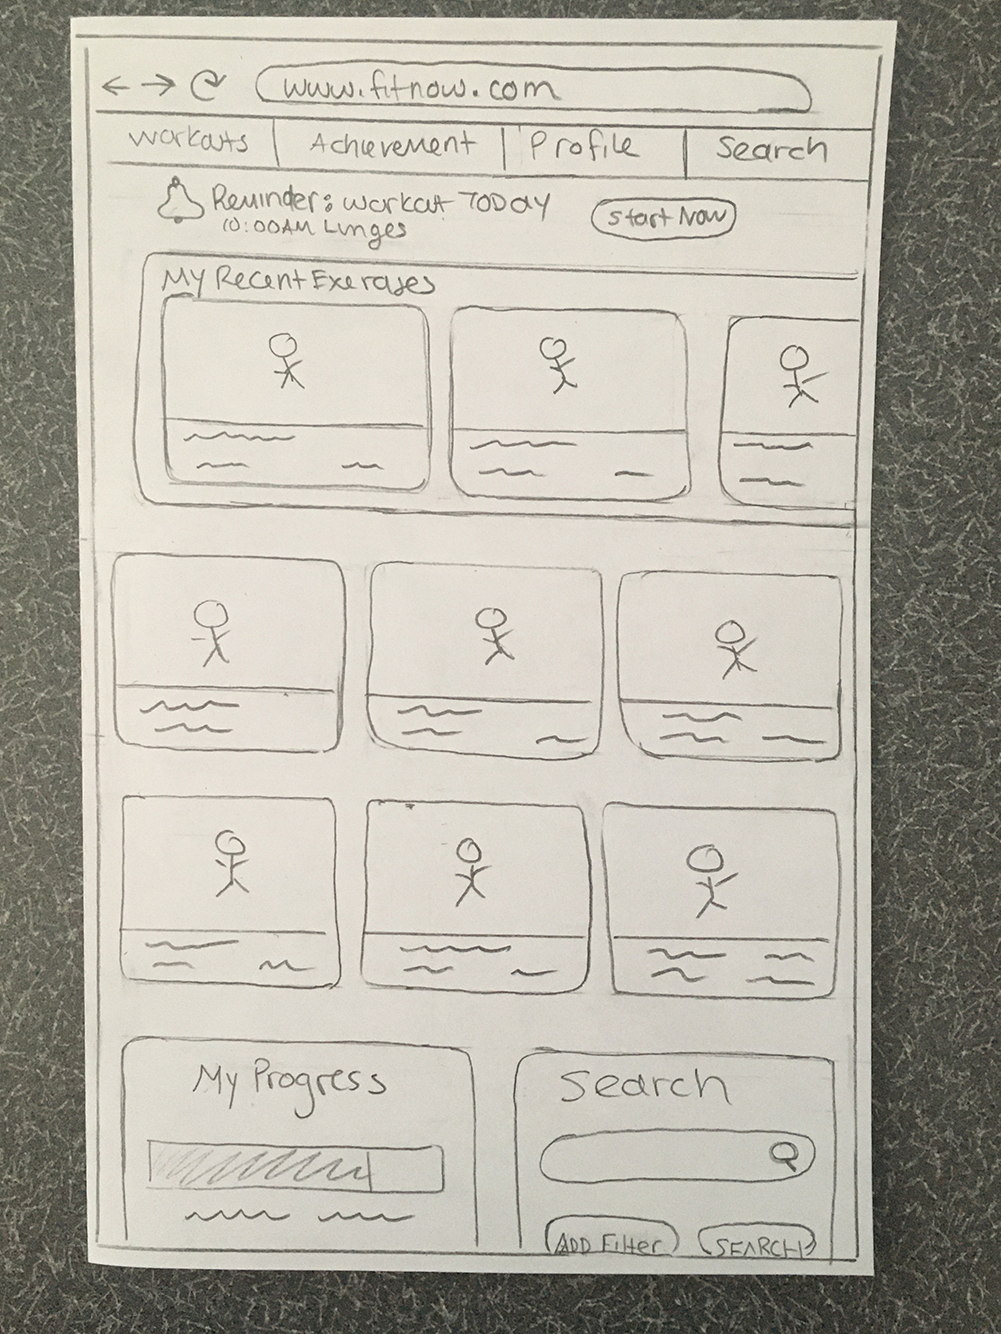 www.fitnow.com
Workouts Achievement Profile Search
Reminder: workout TODAY Start Now
10:00AM Lunges
My Recent Exercises
My Progress Search
ADD Filter SEARCH